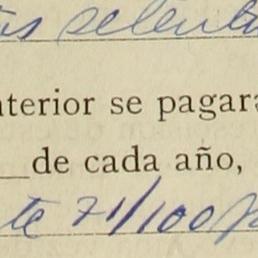 selenta
nterior se pagar
de cada año,
te 71/100